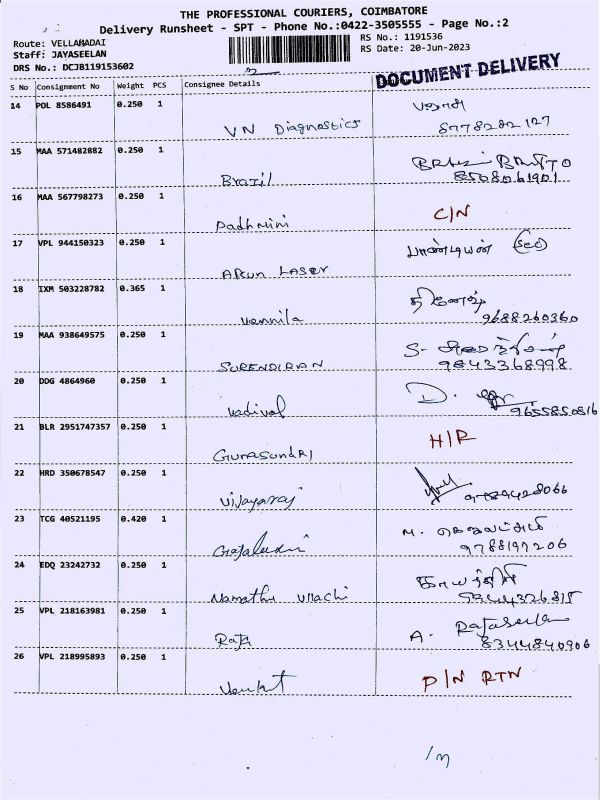 THE PROFESSIONAL COURIERS, COIMBATORE
Delivery Runsheet - SPT - Phone No.:0422-3505555 - Page No.:2
Route: VELLAMADAI
RS No.: 1191536
Staff: JAYASEELAN
RS Date: 20-Jun-2023
DRS No.: DCJB119153602
2
DOCUMENT DELIVERY
S No Consignment No Weight PCS Consignee Details
14 POL 8586491 0.250 1
VN Diagnostics 8778282127
15 MAA 571482882 0.250 1
Brazil 8508061901
16 MAA 567798273 0.250 1
Padhmini C/N
17 VPL 944150323 0.250 1
பாண்டியன்
Arun LASER
18 IXM 503228782 0.365 1
தினேஷ்
Vennila 9688260360
19 MAA 938649575 0.250 1
S-
SURENDIRAN 9843368998
20 DDG 4864960 0.250 1
D.
Vadival 9655850816
21 BLR 2951747357 0.250 1
H/R
Gunasundri
22 HRD 350678547 0.250 1
Vijayaraj
23 TCG 40521195 0.420 1
M.
9788197206
24 EDQ 23242732 0.250 1
காயத்திரி
Namathu
25 VPL 218163981 0.250 1
A.
Raja 8344840906
26 VPL 218995893 0.250 1
Venkat P/N RTN